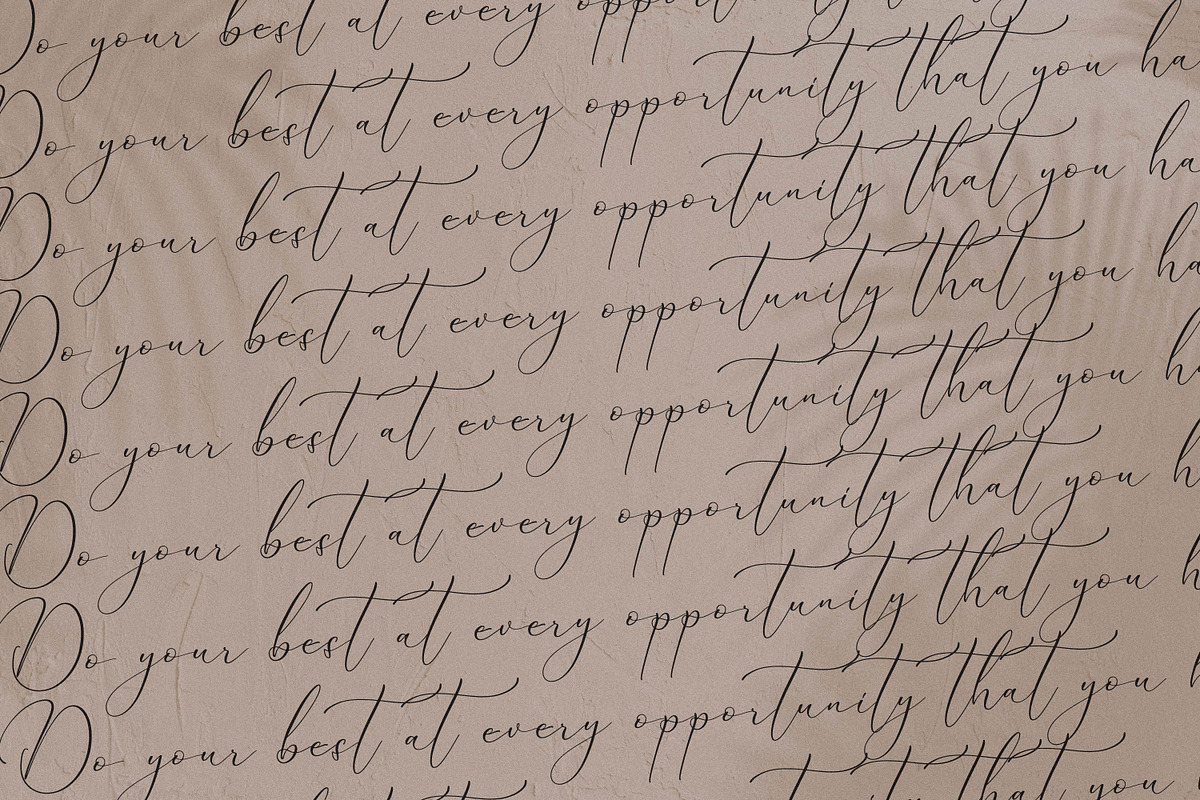 Do your best at every
Do your best at every opportunity that you ha
Do your best at every opportunity that you ha
Do your best at every opportunity that you ha
Do your best at every opportunity that you ha
Do your best at every opportunity that you h
Do your best at every opportunity that you h
Do your best at every opportunity that you h
that you